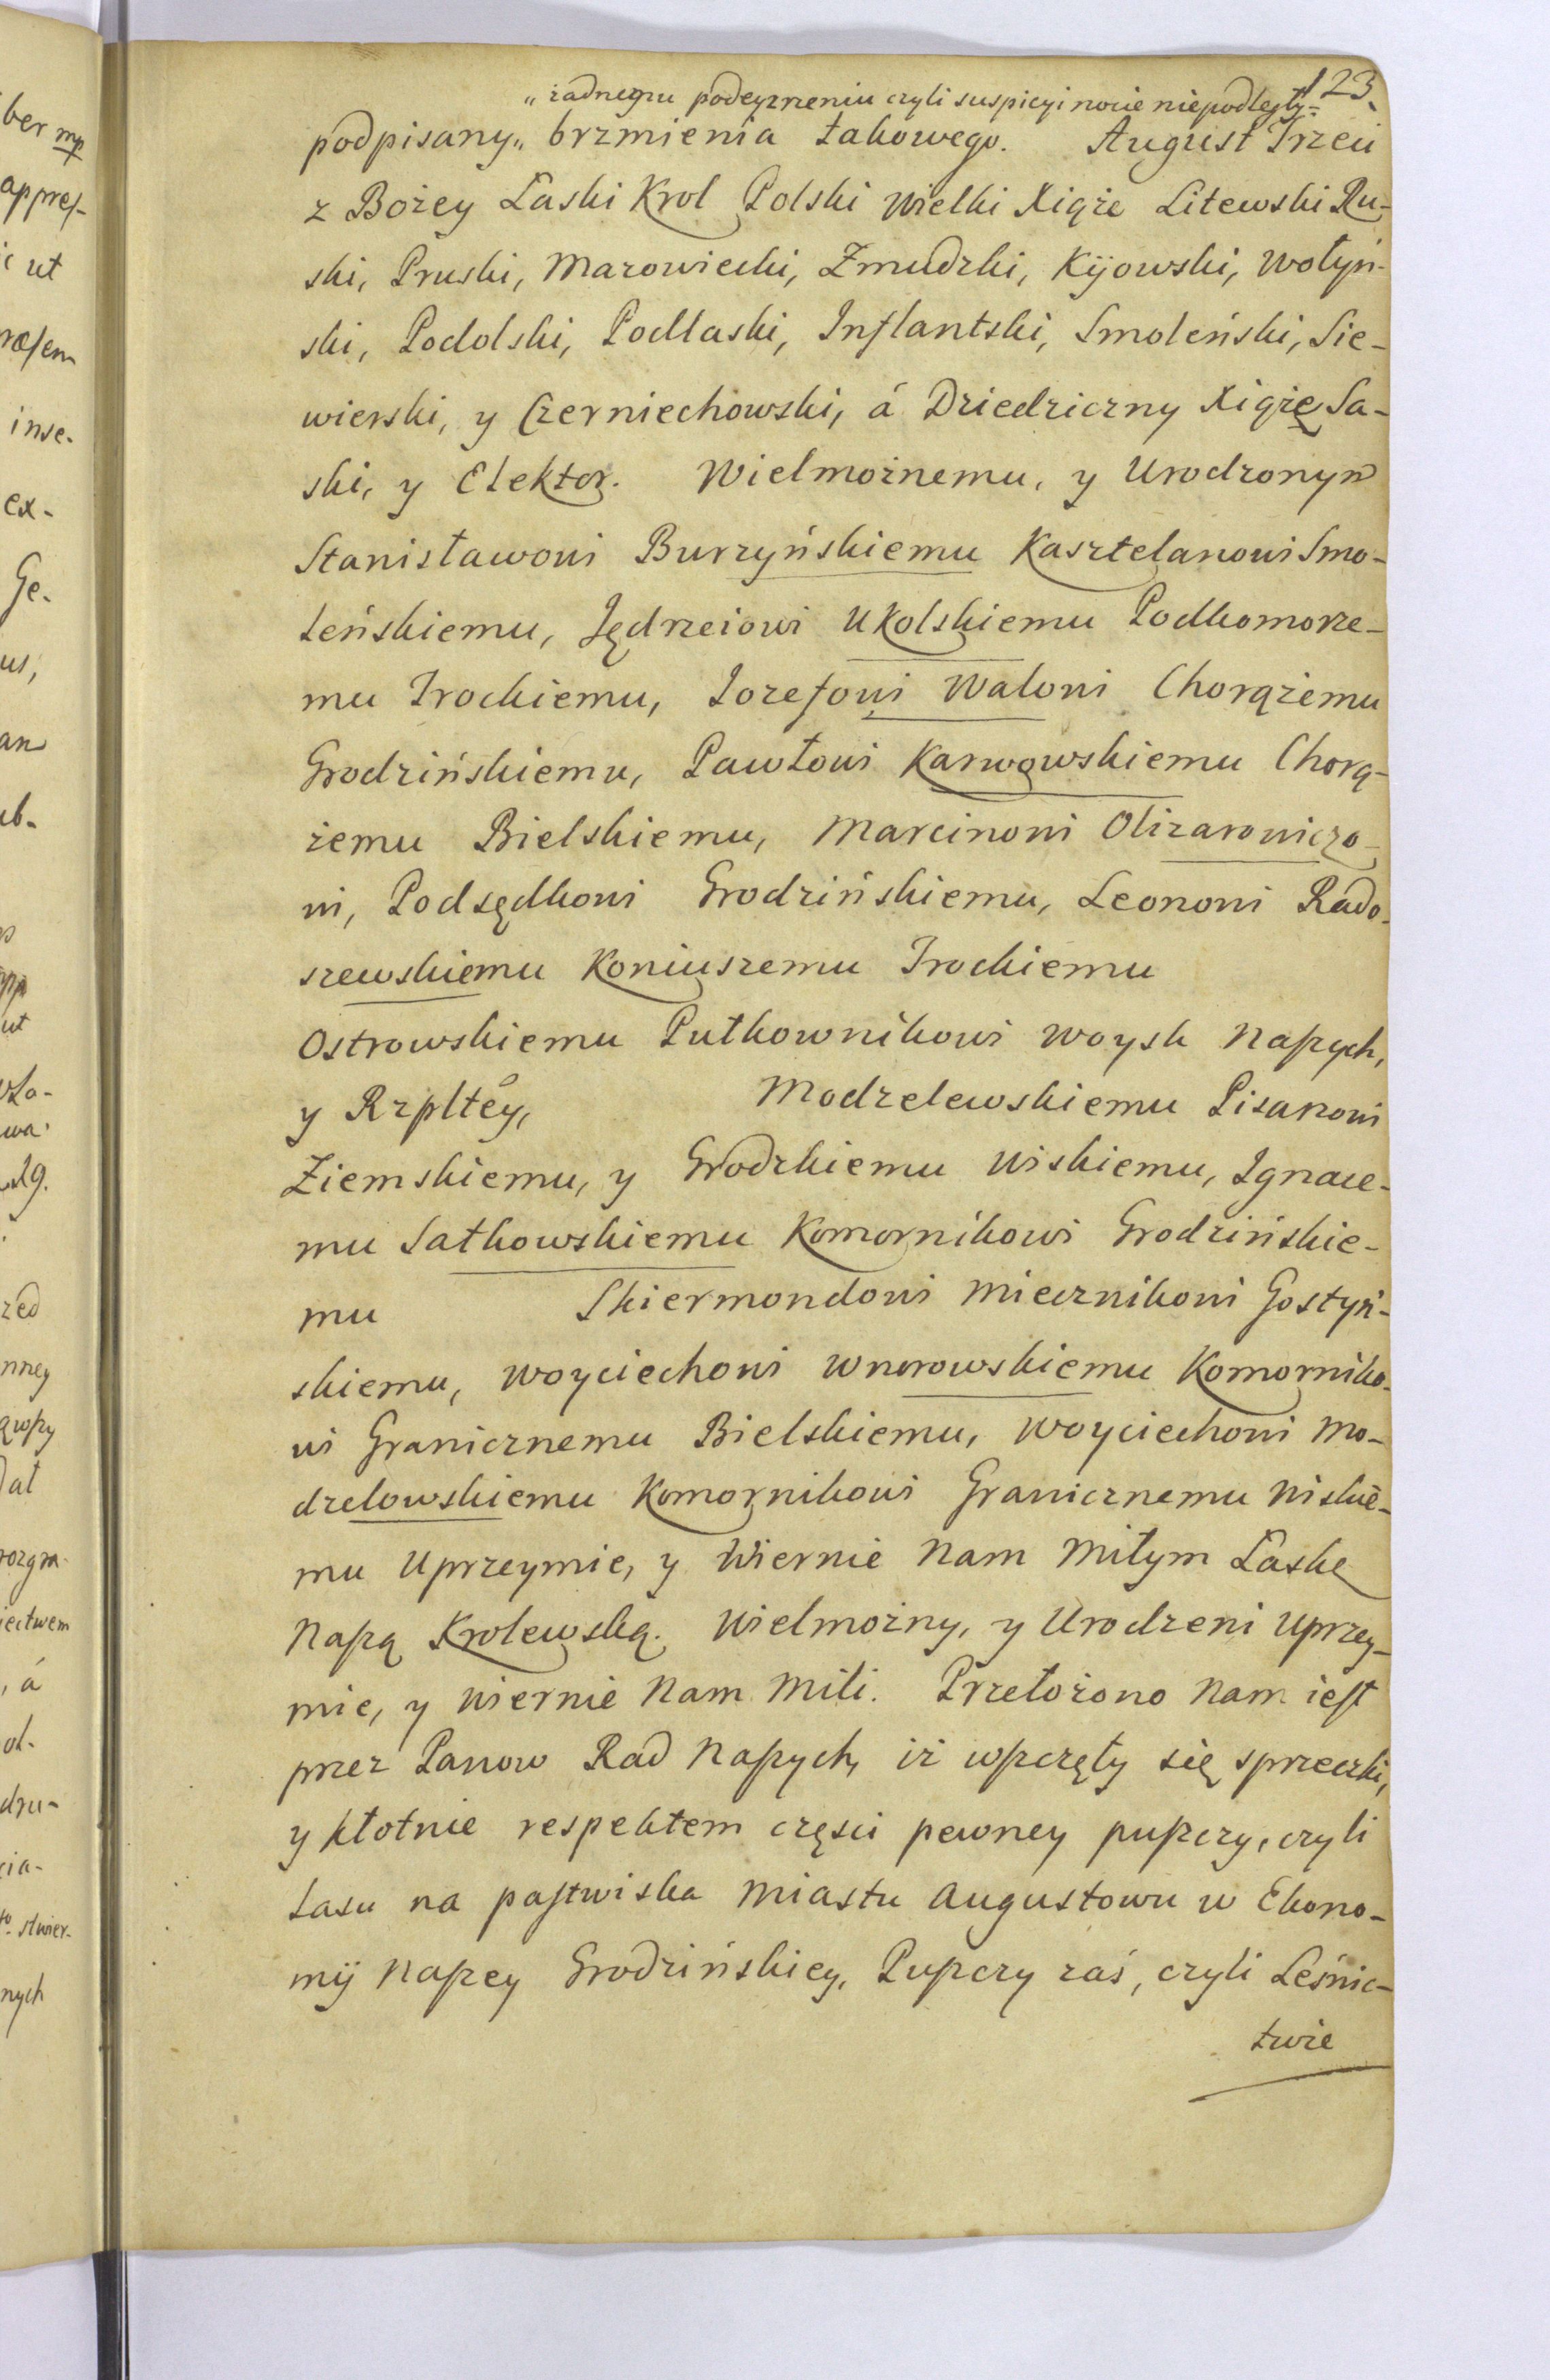 123.
„żadnemu podeyzrzeniu czyli suspicyi nocie niepodległy=
podpisany„ brzmienia takowego. August Trzeci
z Bożey Łaski Krol Polski Wielki Xiąże Litewski Ru-
ski, Pruski, Mazowiecki, Zmudzki, Kijowski, Wołyń-
ski, Podolski, Podlaski, Inflantski, Smoleński, Sie-
wierski, y Czerniechowski, á Dziedziczny Xiążę Sa-
ski, y Elektor. Wielmożnemu, y Urodzonym
Stanisławowi Burzyńskiemu Kasztelanowi Smo-
leńskiemu, Jędrzeiowi Ukolskiemu Podkomorze-
mu Trockiemu, Iozefowi Walowi Chorążemu
Grodzińskiemu, Pawłowi Karwowskiemu Chorą-
żemu Bielskiemu, Marcinowi Olizarowiczo-
wi, Podsędkowi Grodzińskiemu, Leonowi Rado-
szewskiemu Koniuszemu Trockiemu
Ostrowskiemu Pułkownikowi Woysk Naszych,
y Rzpltey, Modzelewskiemu Pisarowi
Ziemskiemu, y Grodzkiemu Wiskiemu, Ignace-
mu Sałkowskiemu Komornikowi Grodzińskie-
mu Skiermondowi Miecznikowi Gostyń-
skiemu, Woyciechowi Wnorowskiemu Komorniko-
wi Granicznemu Bielskiemu, Woyciechowi Mo-
dzelowskiemu Komornikowi Granicznemu Wiskie-
mu Uprzeymie, y Wiernie Nam Miłym Łaskę
Naszą Krolewską. Wielmożny, y Urodzeni Uprzey-
mie, y Wiernie Nam Mili. Przełożono Nam iest
przez Panow Rad Naszych, iż wszczęły się sprzeczki,
y kłotnie respektem części pewney puszczy, czyli
Lasu na pastwiska Miastu Augustowu w Ekono-
mij Naszey Grodzińskiey, Puszczy zaś, czyli Leśnic-
twie